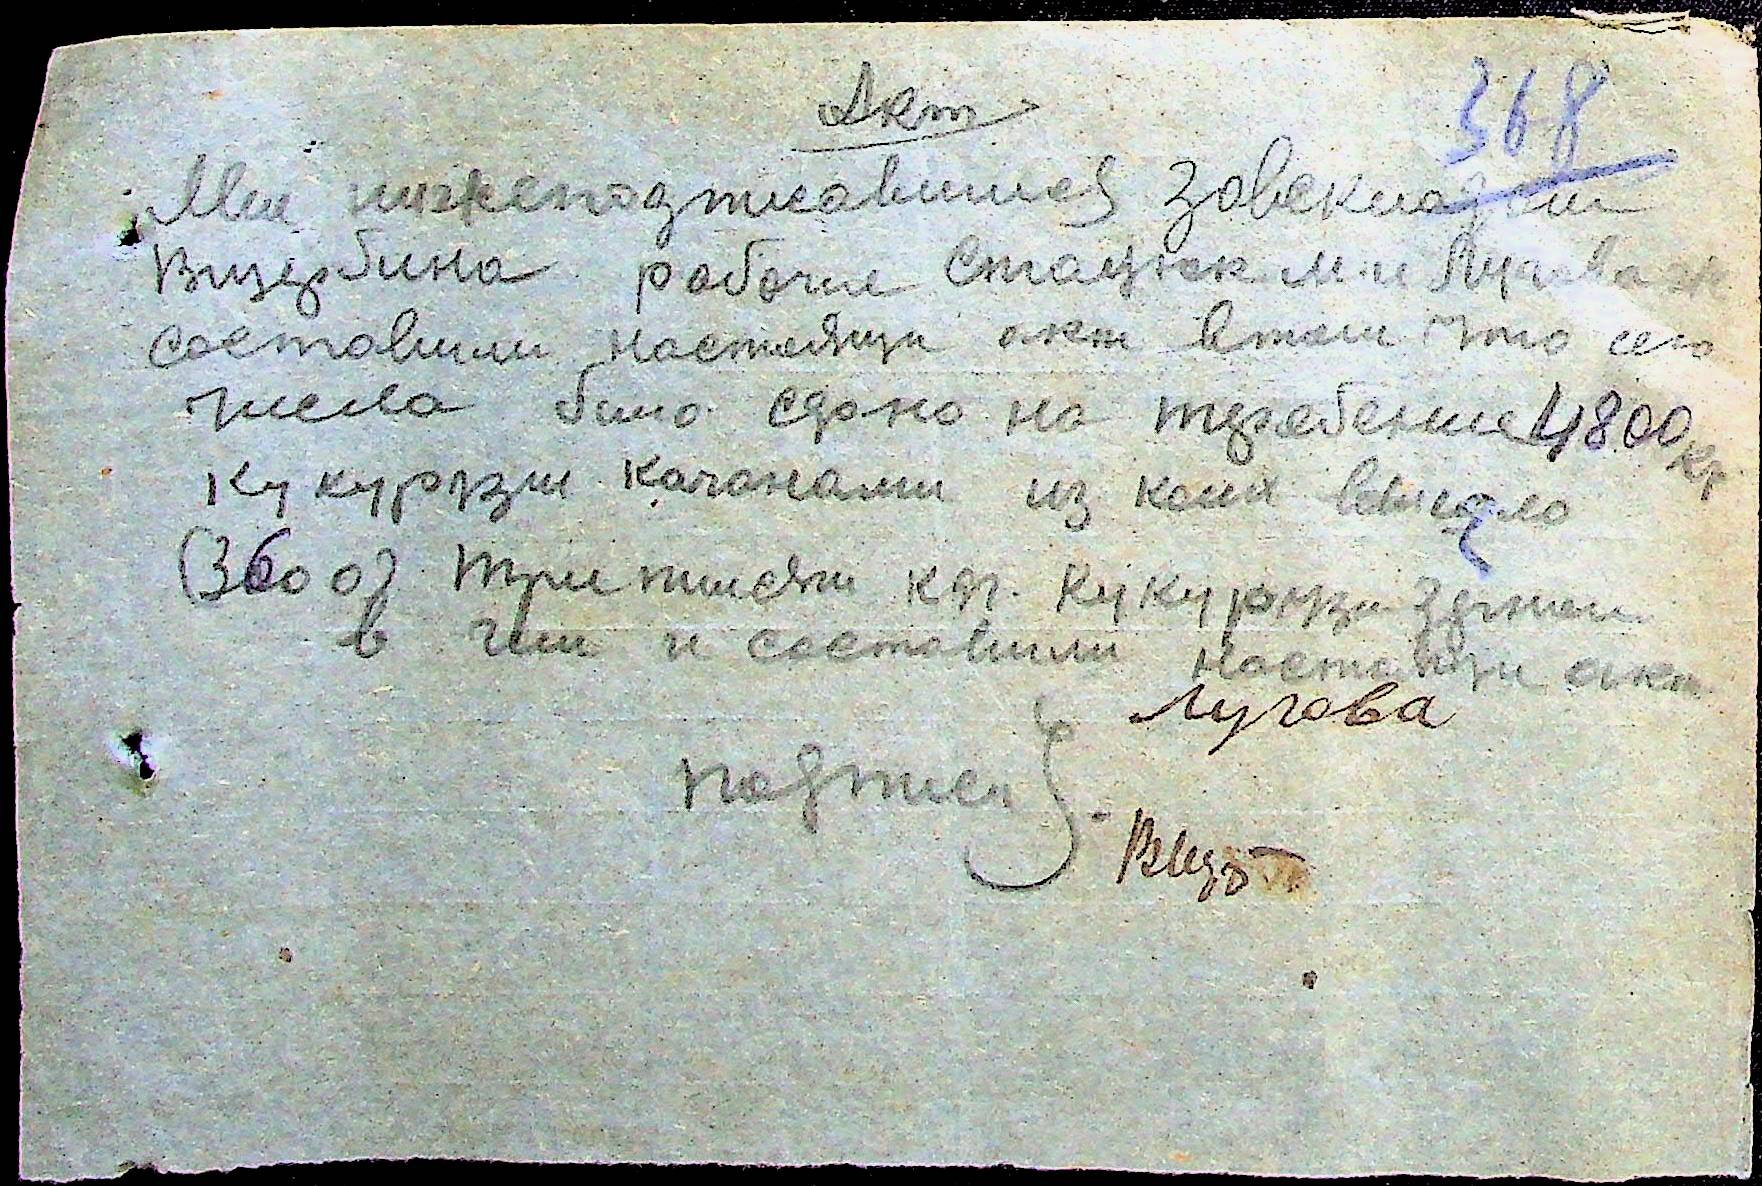 368
Акт
Мы нижеподписавшися завскладом
Вщербина рабочие Стацюк м. и Лугова
составили настоящи акт втом что сего
числа было сдано на теребение 4800 кг
Кукурузы качанами из коих
(3600) три тисячи кгр. Кукурузи
в чем и составили настоящи акт
Лугова
подписи
Вщерб